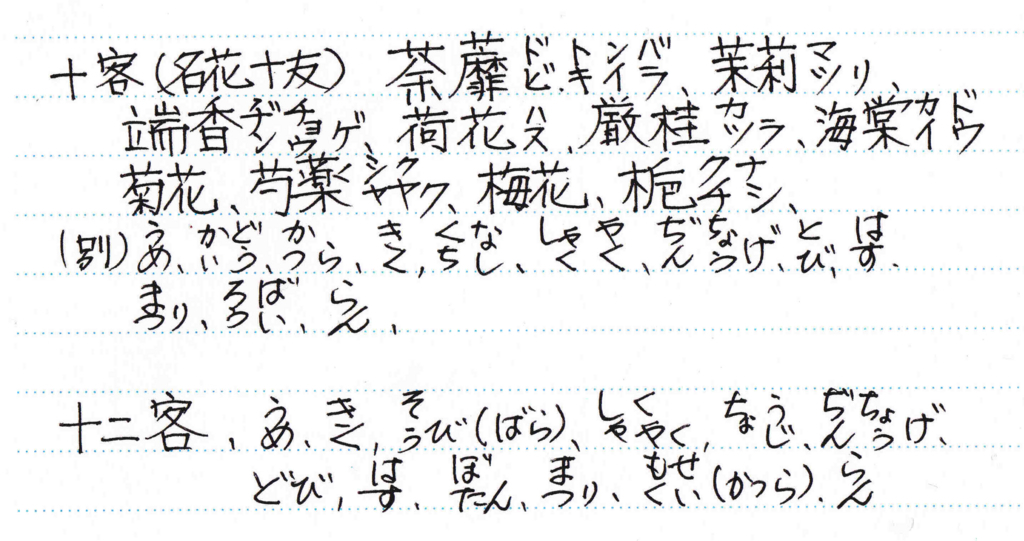 十客(名花十友) 荼蘼ドビ.トキンイバラ、茉莉マツリ、
端香ヂンチョウゲ、荷花ハス、厳桂カツラ、海棠カイドウ
菊花、芍薬シャクヤク、梅花、梔クチナシ、
(別)うめ、かいどう、かつら、きく,くちなし、しゃくやく、ぢんちょうげ、とび、はす.
まつり、ろうばい、らん、
十二客、うめ、きく,そうび(ばら)、しゃくやく,ちょうじ、ぢんちょうげ、
どび,はす、ぼたん、まつり、もくせい(かつら)、らん